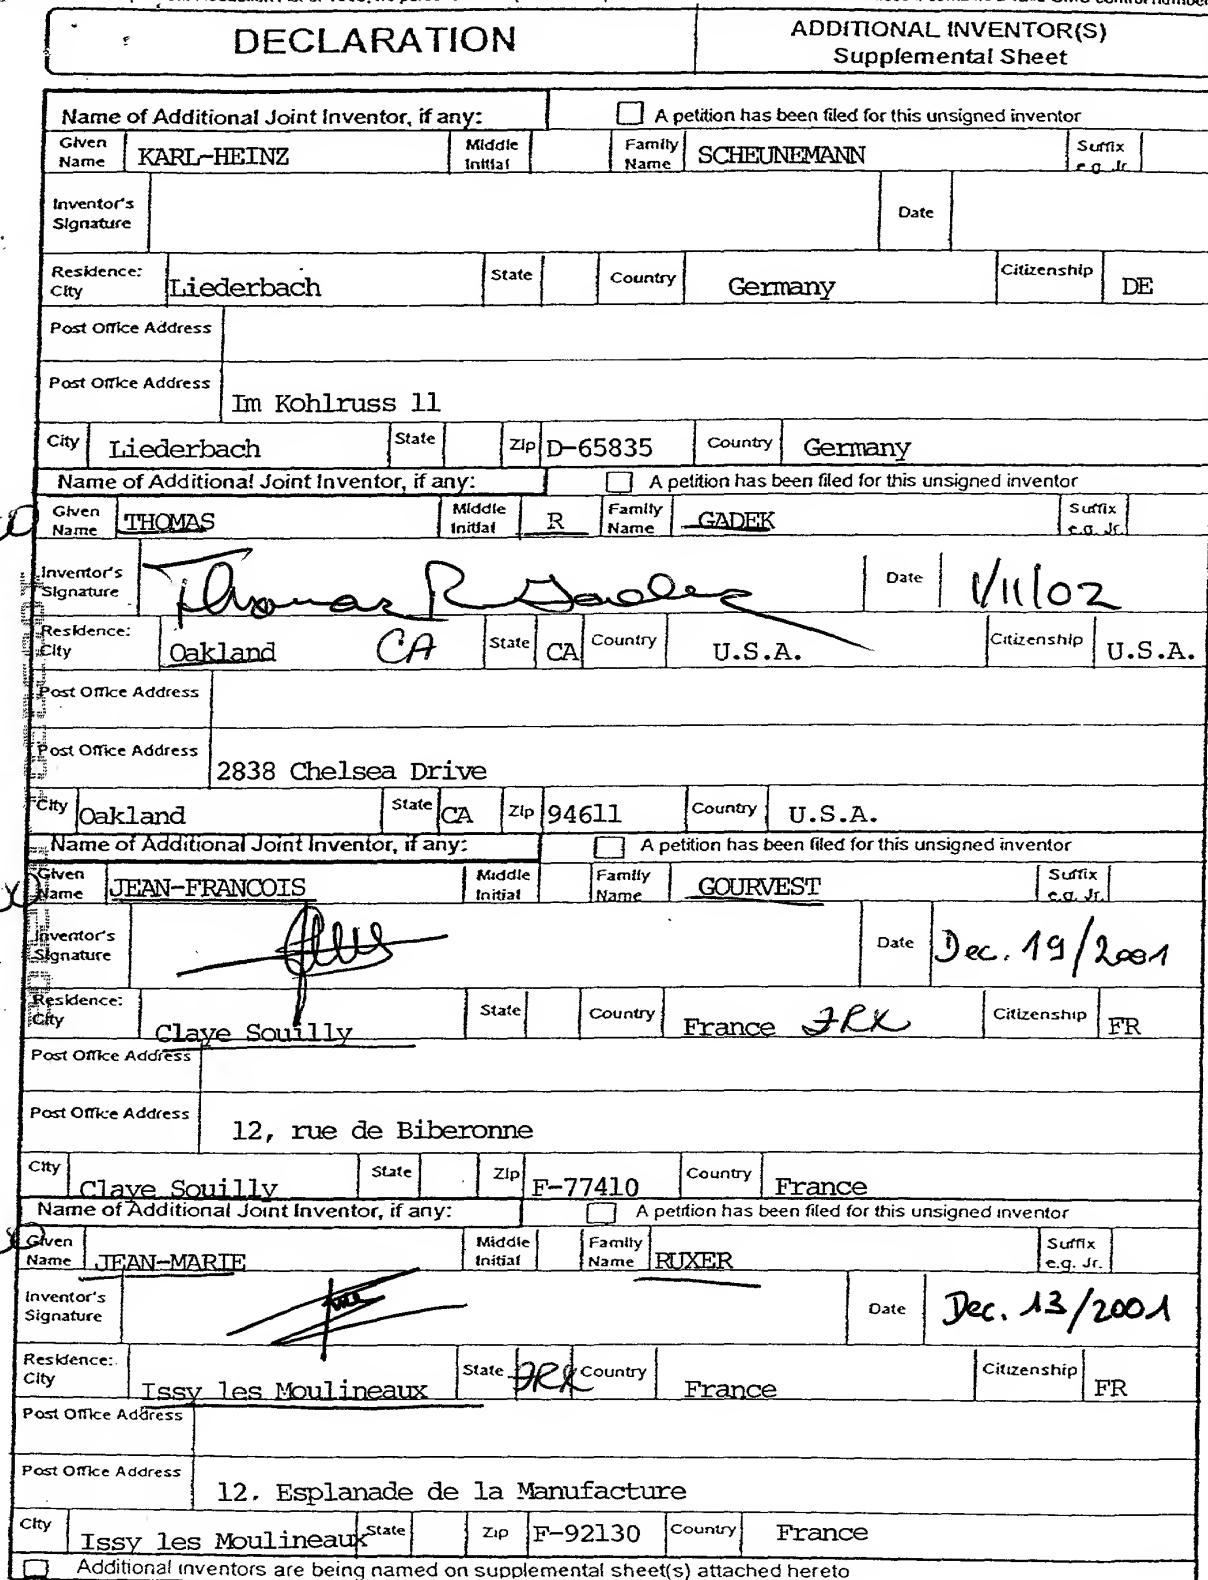 DECLARATION
ADDITIONAL INVENTOR(S)
Supplemental Sheet
Name of Additional Joint Inventor, if any:
A petition has been filed for this unsigned inventor
Given Name KARL-HEINZ Middle Initial Family Name SCHEUNEMANN Suffix e.g. Jr.
Inventor's Signature Date
Residence: City Liederbach State Country Germany Citizenship DE
Post Office Address
Post Office Address Im Kohlruss 11
City Liederbach State Zip D-65835 Country Germany
Name of Additional Joint Inventor, if any:
A petition has been filed for this unsigned inventor
Given Name THOMAS Middle Initial R Family Name GADEK Suffix e.g. Jr.
Inventor's Signature Thomas R Gadek Date 1/11/02
Residence: City Oakland CA State CA Country U.S.A. Citizenship U.S.A.
Post Office Address
Post Office Address 2838 Chelsea Drive
City Oakland State CA Zip 94611 Country U.S.A.
Name of Additional Joint Inventor, if any:
A petition has been filed for this unsigned inventor
Given Name JEAN-FRANCOIS Middle Initial Family Name GOURVEST Suffix e.g. Jr.
Inventor's Signature Date Dec. 19/2001
Residence: City Claye Souilly State Country France FRX Citizenship FR
Post Office Address
Post Office Address 12, rue de Biberonne
City Claye Souilly State Zip F-77410 Country France
Name of Additional Joint Inventor, if any:
A petition has been filed for this unsigned inventor
Given Name JEAN-MARIE Middle Initial Family Name RUXER Suffix e.g. Jr.
Inventor's Signature Date Dec. 13/2001
Residence: City Issy les Moulineaux State FRX Country France Citizenship FR
Post Office Address
Post Office Address 12. Esplanade de la Manufacture
City Issy les Moulineaux State Zip F-92130 Country France
Additional inventors are being named on supplemental sheet(s) attached hereto